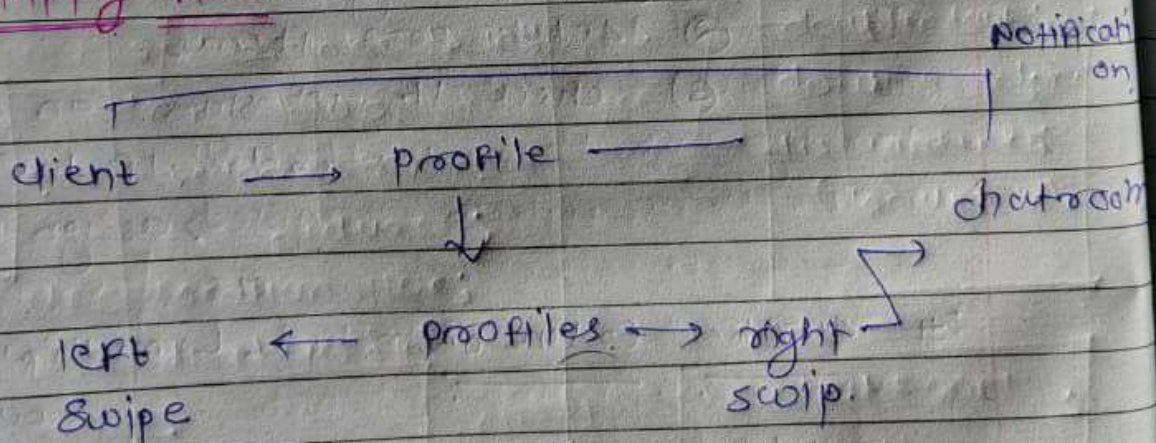 Notificati
on
client → profile
chatroom
left ← profiles → right
swipe swip.